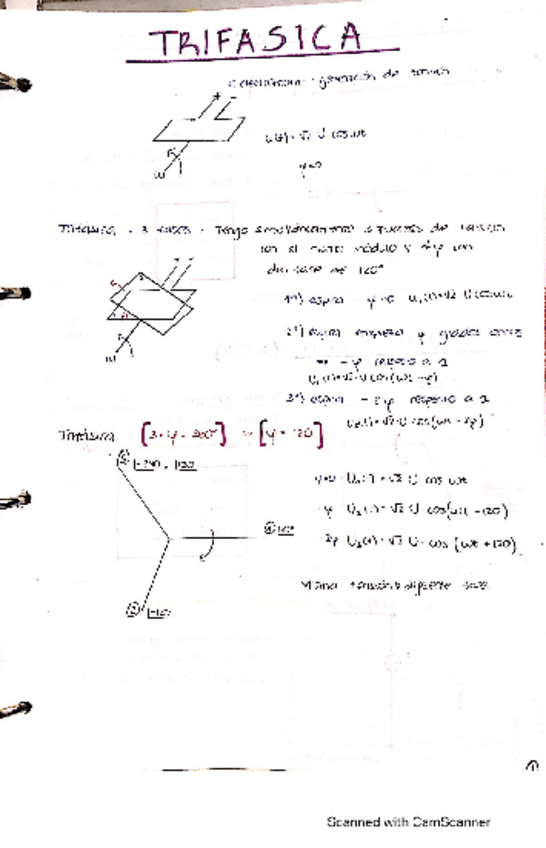 TRIFASICA
generación de tensión
+ -
u(t) = √2 U cos wt
φ=0
w
Trifásica - 3 fases - Tengo simultáneamente 3 fuentes de tensión
con el mismo módulo y
desfase de 120°
1ª) espira φ=0 u₁(t)=√2 U cos wt
2ª) espira empieza φ grados antes
- φ respecto a 1
U₂(t)=√2 U cos(wt - φ)
3ª) espira - 2φ respecto a 1
U₃(t)=√2 U cos(wt - 2φ)
Trifásica [3·φ = 360°] [φ = 120°]
③ |-240 = |120
φ=0 U₁(t) = √2 U cos wt
① |0°
-φ U₂(t) = √2 U cos(wt - 120)
2φ U₃(t) = √2 U cos (wt + 120)
Misma tensión diferente fase
② |-120
1
Scanned with CamScanner